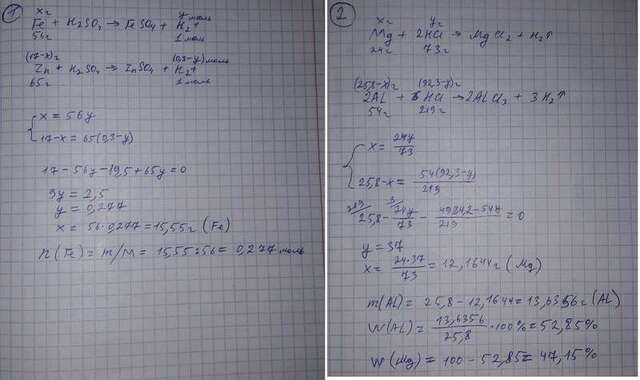 1
x г y моль
Fe + H₂SO₄ → FeSO₄ + H₂↑
56г 1 моль
(17-x)г (0,3-y) моль
Zn + H₂SO₄ → ZnSO₄ + H₂↑
65г 1 моль
x = 56y
17-x = 65(0,3-y)
17 - 56y - 19,5 + 65y = 0
9y = 2,5
y = 0,277
x = 56·0,277 = 15,55г (Fe)
n(Fe) = m/M = 15,55:56 = 0,277 моль
2
x г y г
Mg + 2HCl → MgCl₂ + H₂↑
24г 73г
(25,8-x)г (92,3-y)г
2Al + 6HCl → 2AlCl₃ + 3H₂↑
54г 219г
x = 24y/73
25,8-x = 54(92,3-y)/219
219/ 3/
25,8 - 24y/73 - 4984,2-54y/219 = 0
y = 37
x = 24·37/73 = 12,1644г (Mg)
m(Al) = 25,8 - 12,1644 = 13,6356г (Al)
W(Al) = 13,6356/25,8 · 100% = 52,85%
W(Mg) = 100 - 52,85 = 47,15%